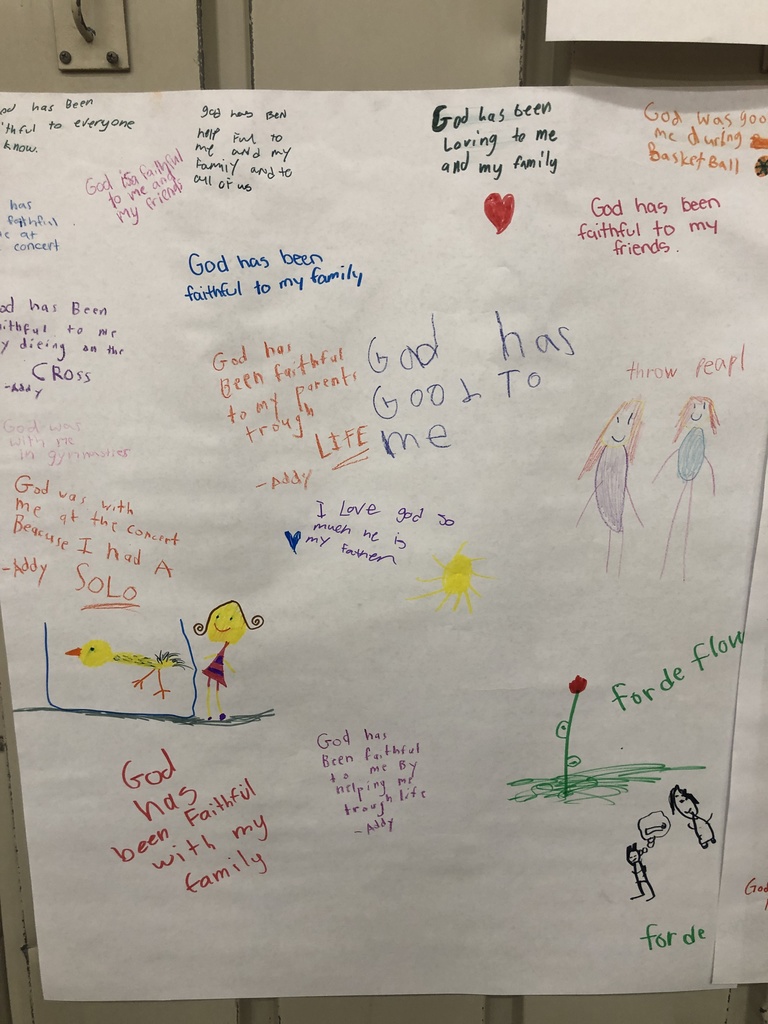 God has Been
faithful to everyone
know.
God is a faithful
to me and
my friends
god has BEN
help ful to
me and my
family and to
all of us
God has been
Loving to me
and my family
God was goo
me during
BasketBall
has
faithful
at
concert
God has been
faithful to my family
God has been
faithful to my
friends.
God has Been
faithful to me
By dieing on the
CROSS
-Addy
God has
Been faithful
to my parents
trough
LIFE
-Addy
God has
Good To
me
throw peapl
God was
with me
in gymnastics
God was with
me at the concert
Beacuse I had A
SOLO
-Addy
I Love god so
much he is
my father
for de flow
God has
been Faithful
with my
family
God has
Been faithful
to me By
helping me
trough life
-Addy
for de
God